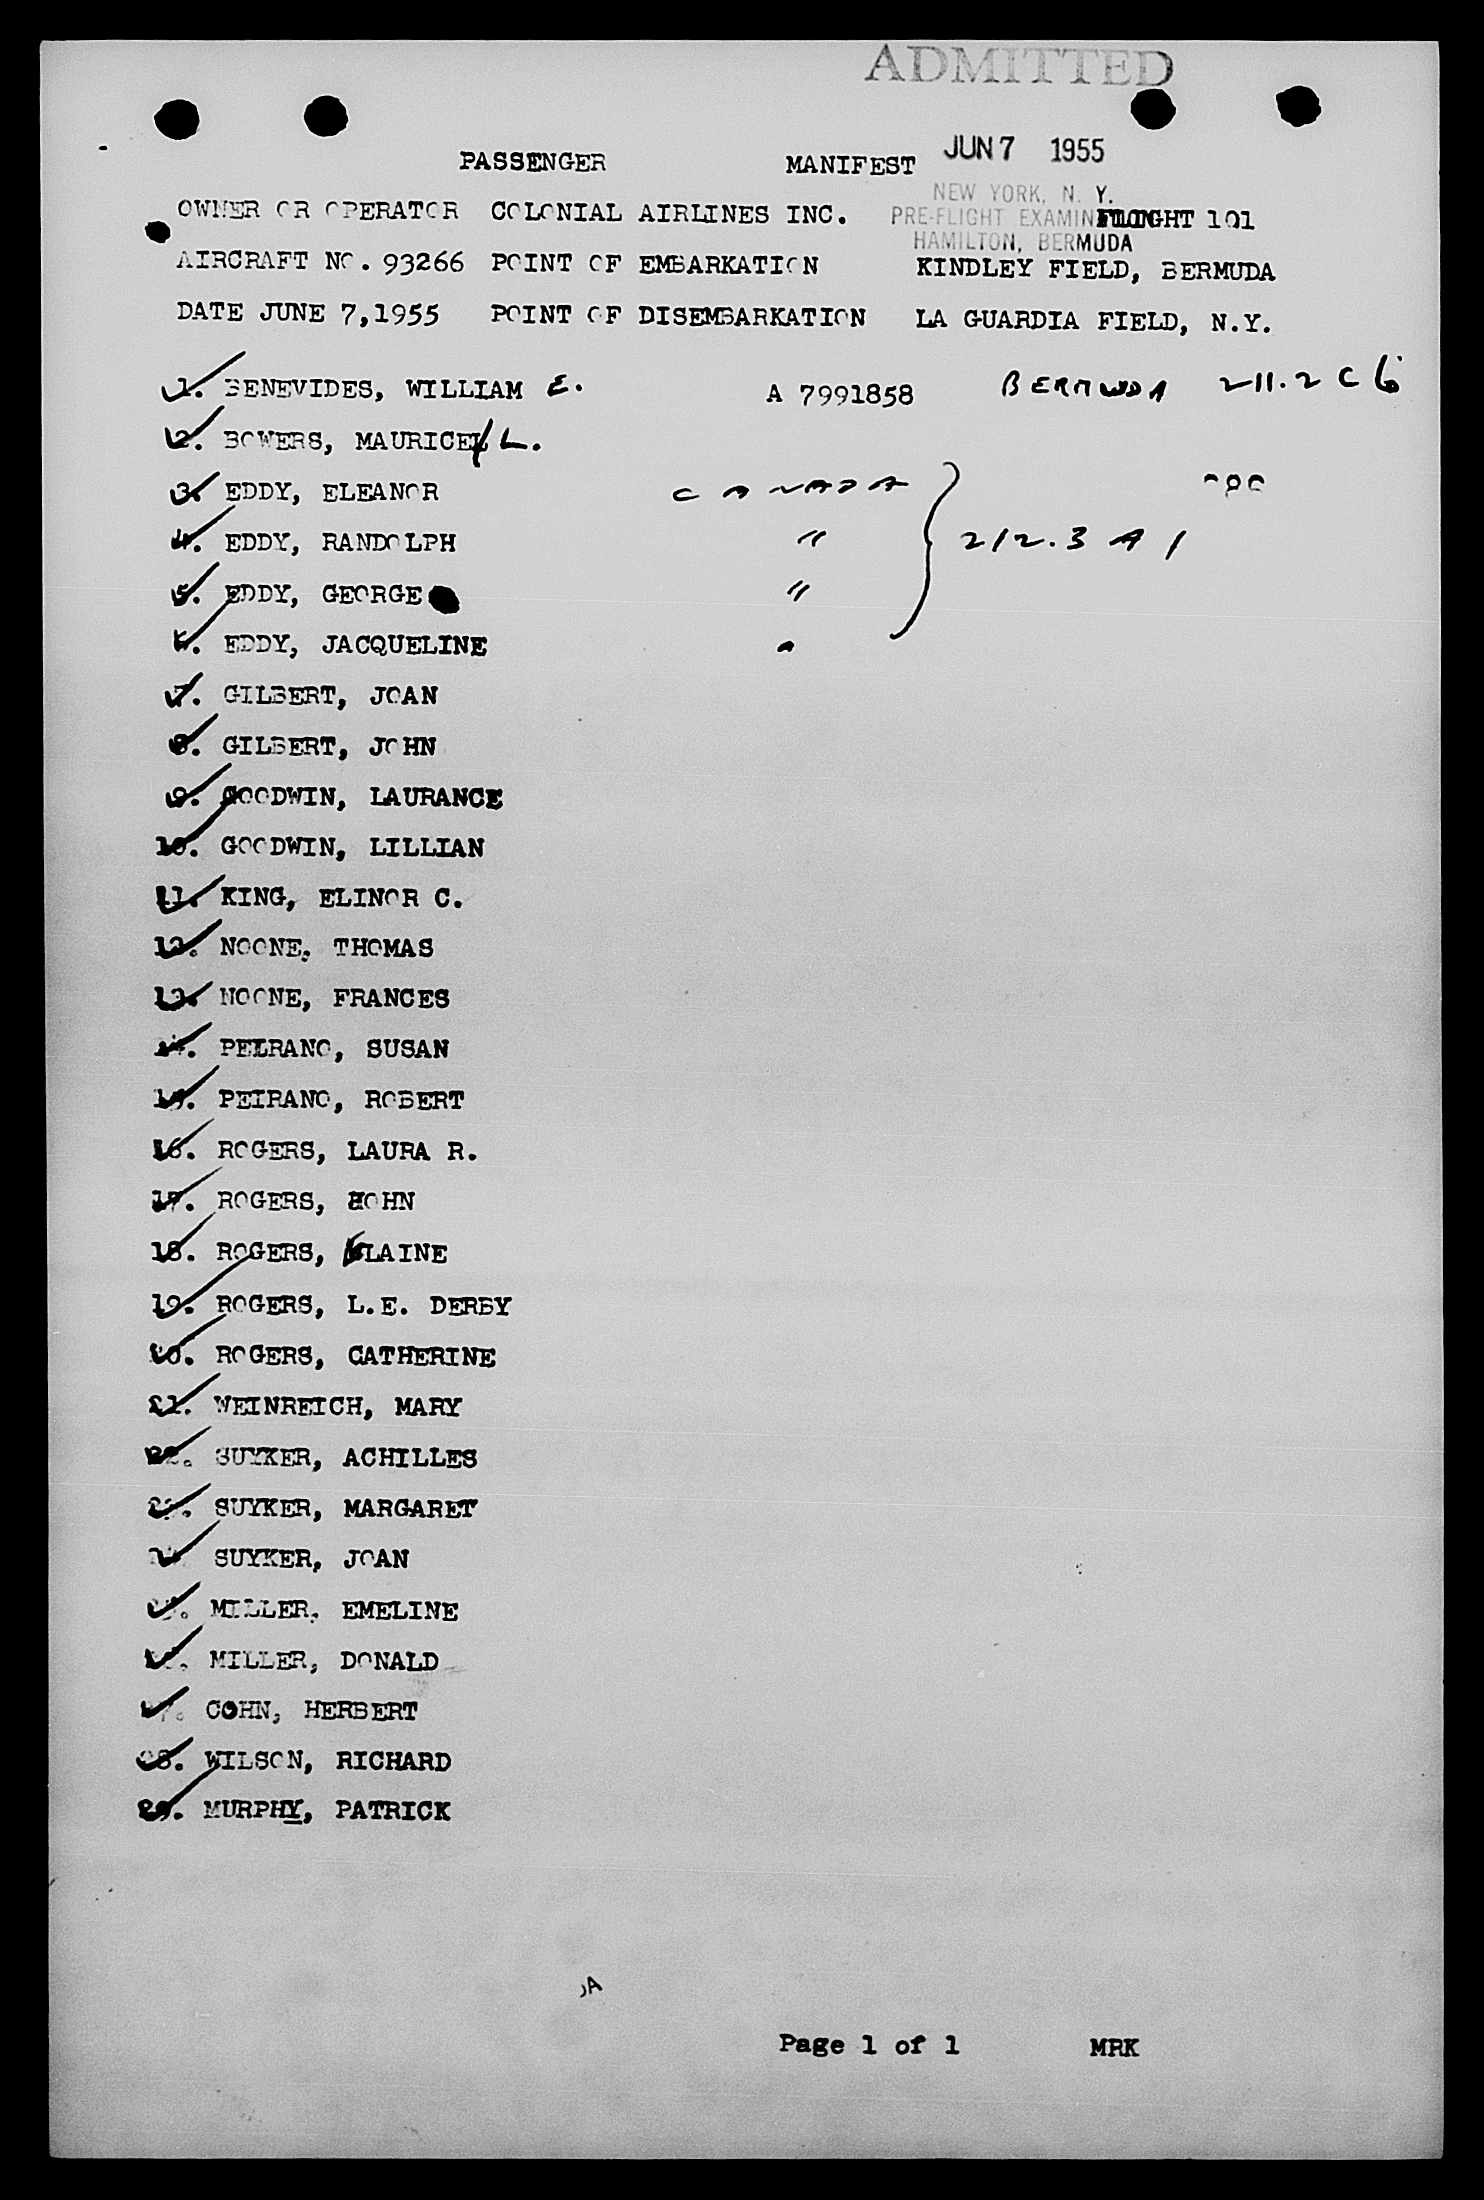 ADMITTED
JUN 7 1955
PASSENGER MANIFEST
NEW YORK, N. Y.
OWNER OR OPERATOR COLONIAL AIRLINES INC. PRE-FLIGHT FLIGHT 101
HAMILTON, BERMUDA
AIRCRAFT NO. 93266 POINT OF EMBARKATION KINDLEY FIELD, BERMUDA
DATE JUNE 7,1955 POINT OF DISEMBARKATION LA GUARDIA FIELD, N.Y.
1. BENEVIDES, WILLIAM E. A 7991858 BERMUDA 211.2 C 6
2. BOWERS, MAURICE L.
3. EDDY, ELEANOR CANADA
4. EDDY, RANDOLPH " 212.3 A 1
5. EDDY, GEORGE "
6. EDDY, JACQUELINE "
7. GILBERT, JOAN
8. GILBERT, JOHN
9. GOODWIN, LAURANCE
10. GOODWIN, LILLIAN
11. KING, ELINOR C.
12. NOONE, THOMAS
13. NOONE, FRANCES
14. PEIRANO, SUSAN
15. PEIRANO, ROBERT
16. ROGERS, LAURA R.
17. ROGERS, JOHN
18. ROGERS, ELAINE
19. ROGERS, L.E. DERBY
20. ROGERS, CATHERINE
21. WEINREICH, MARY
22. SUYKER, ACHILLES
23. SUYKER, MARGARET
24. SUYKER, JOAN
25. MILLER, EMELINE
26. MILLER, DONALD
27. COHN, HERBERT
28. WILSON, RICHARD
29. MURPHY, PATRICK
Page 1 of 1 MRK